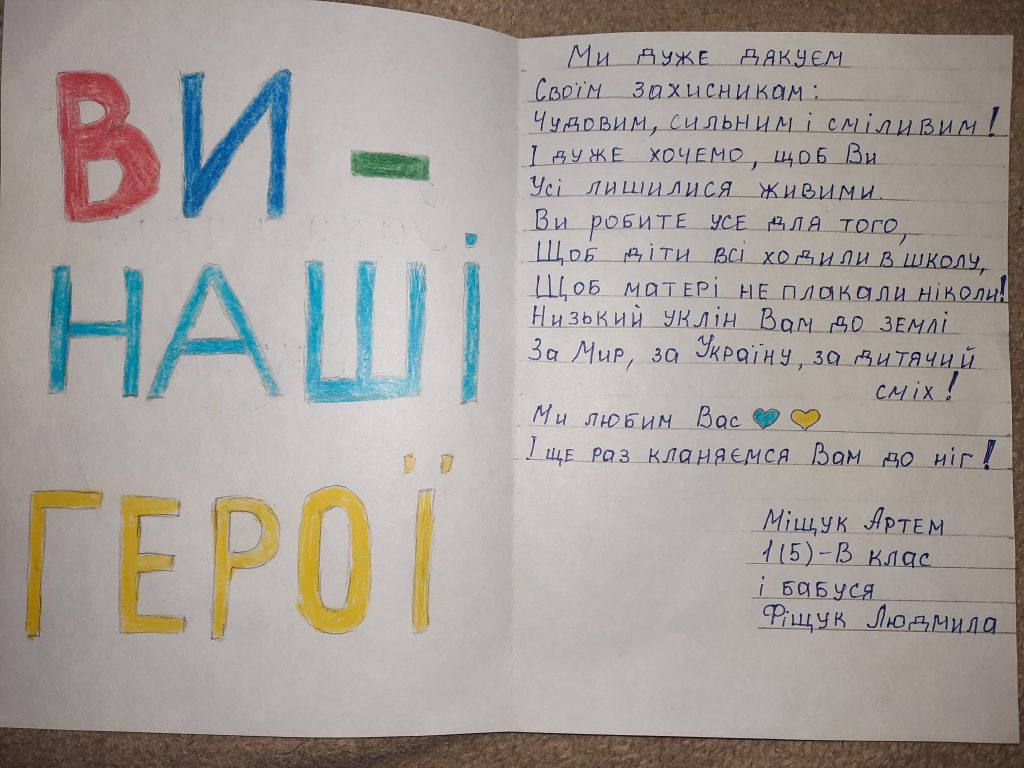 ВИ –
НАШІ
ГЕРОЇ
Ми дуже дякуєм
Своїм захисникам:
Чудовим, сильним і сміливим!
І дуже хочемо, щоб Ви
Усі лишилися живими.
Ви робите усе для того,
Щоб діти всі ходили в школу,
Щоб матері не плакали ніколи!
Низький уклін Вам до землі
За Мир, за Україну, за дитячий
сміх!
Ми любим Вас 💙 💛
І ще раз кланяємся Вам до ніг!
Міщук Артем
1(5)-В клас
і бабуся
Фіщук Людмила